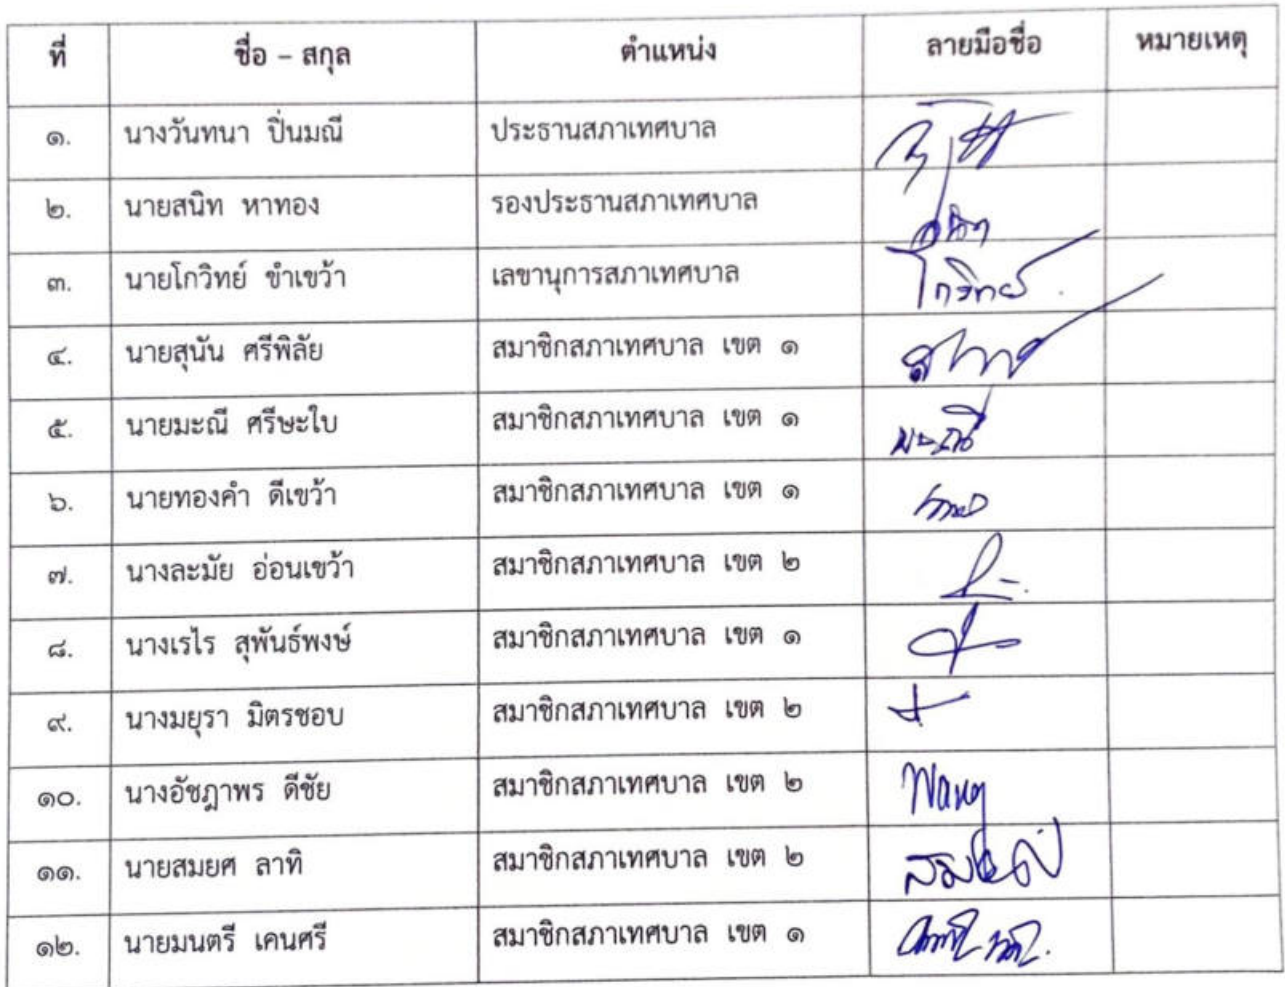 ที่ ชื่อ – สกุล ตำแหน่ง ลายมือชื่อ หมายเหตุ
๑. นางวันทนา ปิ่นมณี ประธานสภาเทศบาล
๒. นายสนิท หาทอง รองประธานสภาเทศบาล สนิท
๓. นายโกวิทย์ ขำเขว้า เลขานุการสภาเทศบาล โกวิทย์
๔. นายสุนัน ศรีพิลัย สมาชิกสภาเทศบาล เขต ๑
๕. นายมะณี ศรีษะใบ สมาชิกสภาเทศบาล เขต ๑ มะณี
๖. นายทองคำ ดีเขว้า สมาชิกสภาเทศบาล เขต ๑
๗. นางละมัย อ่อนเขว้า สมาชิกสภาเทศบาล เขต ๒
๘. นางเรไร สุพันธ์พงษ์ สมาชิกสภาเทศบาล เขต ๑
๙. นางมยุรา มิตรชอบ สมาชิกสภาเทศบาล เขต ๒
๑๐. นางอัชฎาพร ดีชัย สมาชิกสภาเทศบาล เขต ๒
๑๑. นายสมยศ ลาทิ สมาชิกสภาเทศบาล เขต ๒
๑๒. นายมนตรี เคนศรี สมาชิกสภาเทศบาล เขต ๑